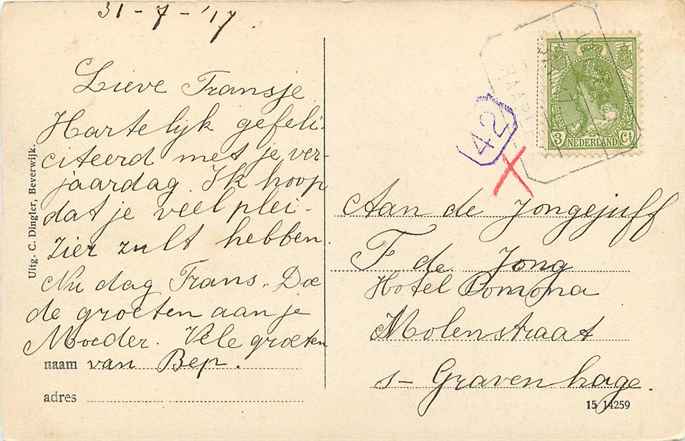 31-7-'17.
Lieve Fransje
Hartelijk gefeli-
citeerd met je ver-
jaardag. Ik hoop
dat je veel plei-
zier zult hebben.
Nu dag Frans. Doe
de groeten aan je
Moeder. Vele groeten
naam van Bep.
adres
Uitg. C. Dingler, Beverwijk.
42
3 Ct
NEDERLAND
Aan de Jongejuff
F de Jong
Hotel Pomona
Molenstraat
s-Gravenhage.
15 14259